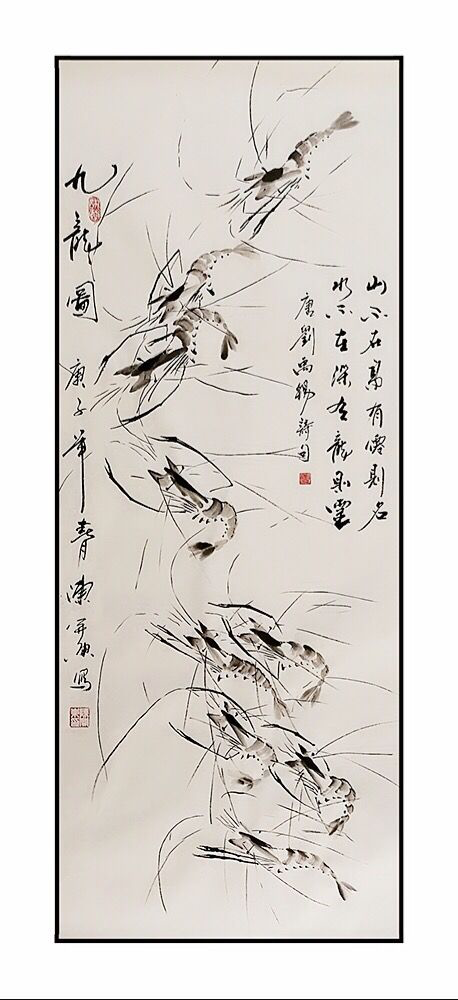 山不在高有僊則名
水不在深有龍則靈
唐劉禹錫詩句
九龍圖
庚子年 陳 寫